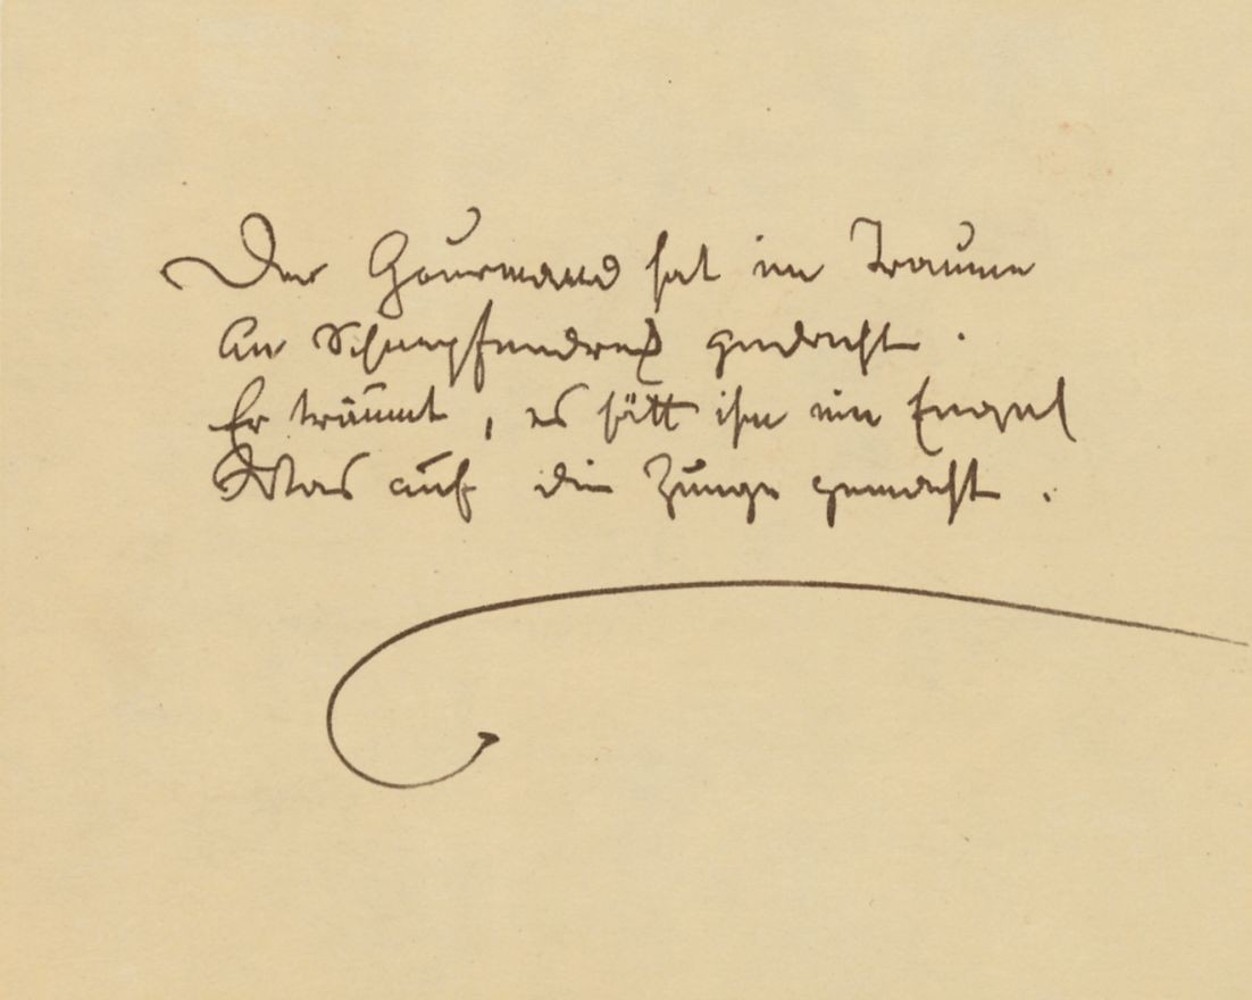 Der Gourmand hat im Traume
An Schnepfendreck gedacht.
Er träumt, es hätt ihm ein Engel
Was auf die Zunge gemacht.